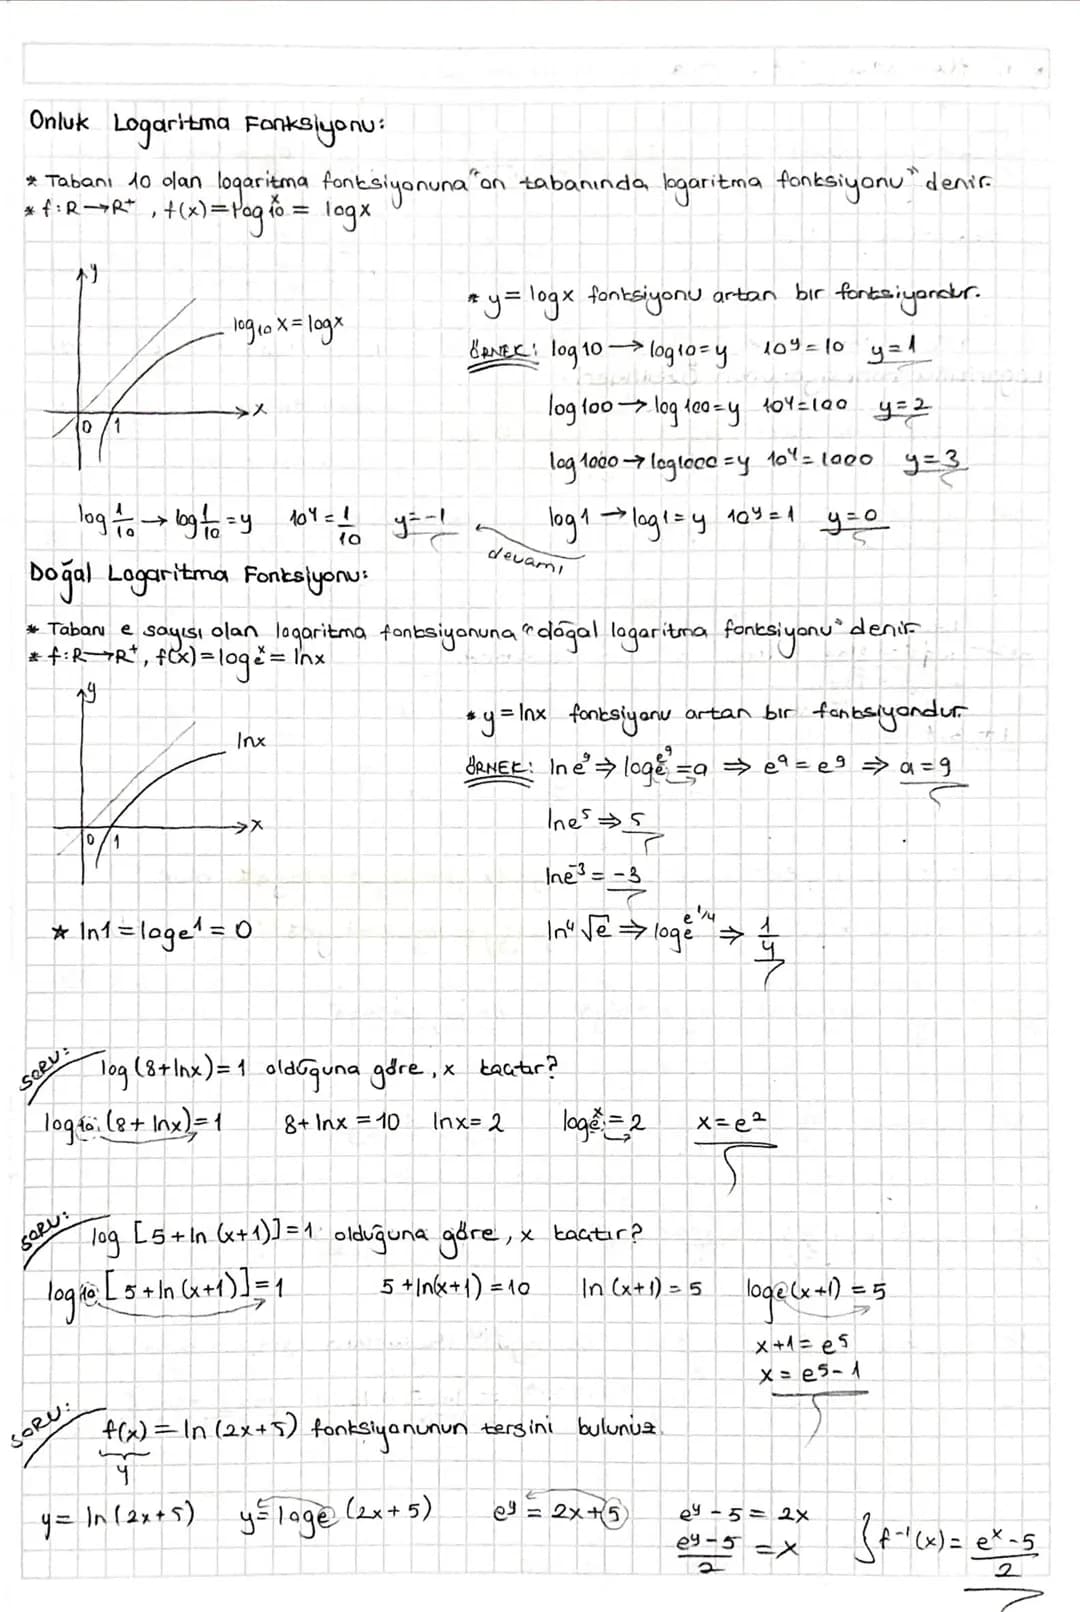 Onluk Logaritma Fonksiyonu:
* Tabanı 10 olan logaritma fonksiyonuna "on tabanında logaritma fonksiyonu" denir.
* f:R→R⁺, f(x)=log₁₀ˣ = logx
y
log₁₀x=logx
x
0 1
* y=logx fonksiyonu artan bir fonksiyondur.
ÖRNEK: log10→log10=y 10ʸ=10 y=1
log100→log100=y 10ʸ=100 y=2
log1000→log1000=y 10ʸ=1000 y=3
log1→log1=y 10ʸ=1 y=0
devamı
log 1/10 → log 1/10 =y 10ʸ=1/10 y=-1
Doğal Logaritma Fonksiyonu:
* Tabanı e sayısı olan logaritma fonksiyonuna "doğal logaritma fonksiyonu" denir.
* f:R→R⁺, f(x)=logₑˣ = lnx
y
lnx
x
0 1
* y=lnx fonksiyonu artan bir fonksiyondur.
ÖRNEK: lne⁹⇒logₑe⁹=a ⇒ eᵃ=e⁹ ⇒ a=9
lne⁵⇒5
lne⁻³=-3
ln⁴√e⇒logₑe^1/4⇒ 1/4
* ln1=logₑ1=0
SORU: log(8+lnx)=1 olduğuna göre, x kaçtır?
log₁₀(8+lnx)=1 8+lnx=10 lnx=2 logₑˣ=2 x=e²
SORU: log [5+ln(x+1)]=1 olduğuna göre, x kaçtır?
log₁₀[5+ln(x+1)]=1 5+ln(x+1)=10 ln(x+1)=5 logₑ(x+1)=5
x+1=e⁵
x=e⁵-1
SORU: f(x)=ln(2x+5) fonksiyonunun tersini bulunuz.
y
y=ln(2x+5) y=logₑ(2x+5) eʸ=2x+5 eʸ-5=2x
(eʸ-5)/2=x f⁻¹(x)=(eˣ-5)/2